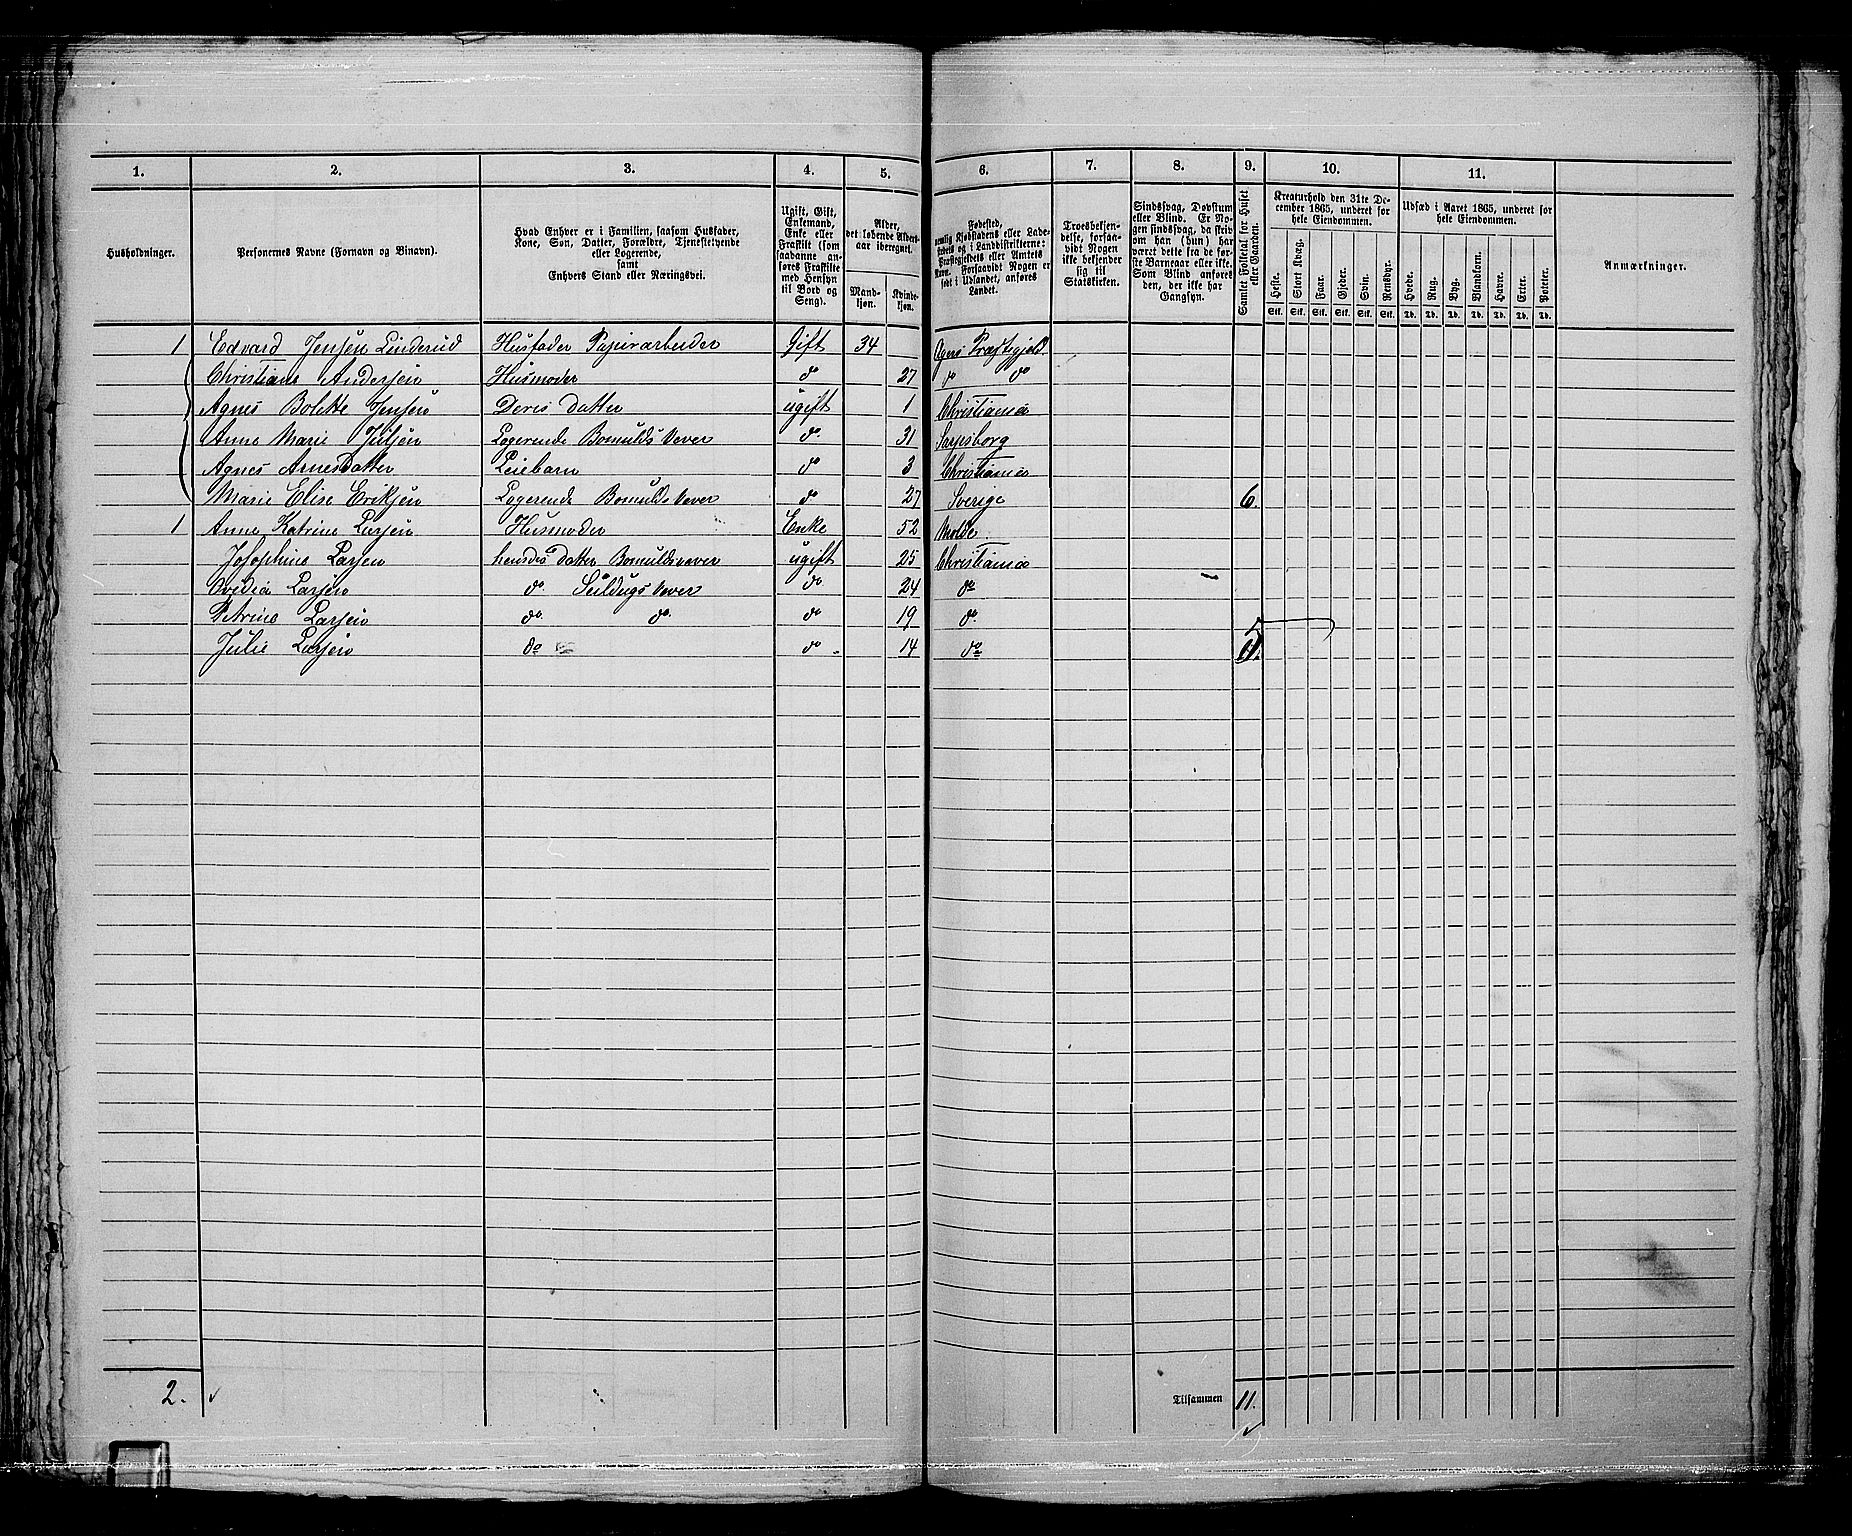 1. 2. 3. 4. 5. 6. 7. 8. 9. 10. 11.
Husholdninger.
Personernes Navne (Fornavn og Binavn).
Hvad Enhver er i Familien, saasom Husfader,
Kone, Søn, Datter, Forældre, Tjenestetyende
eller Logerende,
samt
Enhvers Stand eller Næringsvei.
Ugift, Gift,
Enkemand,
Enke eller
Fraskilt (som
saadanne an-
føres Fraskilte
med Hensyn
til Bord og
Seng).
Alder,
det løbende Alders-
aar iberegnet.
Mand-
kjøn.
Kvinde-
kjøn.
Fødested,
nemlig Kjøbstadens eller Lade-
stedets og i Landdistrikterne:
Præstegjeldets eller Amtets
Navn. Forsaavidt Nogen er
født i Udlandet, anføres
Landet.
Troesbekjen-
delse, forsaa-
vidt Nogen
ikke bekjender
sig til
Statskirken.
Sindssvag, Døvstum
eller Blind. Er No-
gen sindssvag, da skriv
om han (hun) har
været dette fra de før-
ste Barneaar eller ikke.
Som Blind anføres
den, der ikke har
Gangsyn.
Samlet Folketal for Huset
eller Gaarden.
Kreaturhold den 31te De-
cember 1865, underet for
hele Eiendommen.
Heste. Stort Kvæg. Faar. Gjeder. Svin. Rensdyr.
Stk. Stk. Stk. Stk. Stk. Stk.
Udsæd i Aaret 1865, underet for
hele Eiendommen.
Hvede. Rug. Byg. Blandkorn. Havre. Erter. Poteter.
Td. Td. Td. Td. Td. Td. Td.
Anmærkninger.
1 Edvard Jensen Linderud Husfader Papirarbeider Gift 34 Agers Præstegjeld
Christiane Andersen Husmoder do 27 do do
Agnes Bolette Jensen Deris Datter ugift 1 Christiania
Anne Marie Julsen Logerende Bomulds Vever do 31 Sarpsborg
Agnes Arnesdatter Leiebarn do 3 Christiania
Marie Elise Eriksen Logerende Bomulds Vever do 27 Sverige 6.
1 Anne Katrine Larsen Husmoder Enke 52 Molde
Josephine Larsen hendes Datter Bomuldsvever ugift 25 Christiania
Ovidia Larsen do Seildugs Vever do 24 do
Petrine Larsen do do do 19 do
Julie Larsen do do 14 do 5
2. Tilsammen 11.